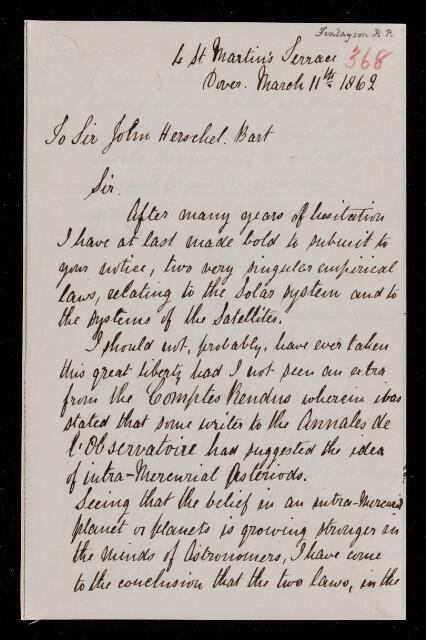 Finlayson R. P.
368
4 St Martin's Terrace
Dover. March 11th 1862
To Sir John Herschel. Bart
Sir.
After many years of hesitation
I have at last made bold to submit to
your notice, two very singular empirical
laws, relating to the Solar system and to
the systems of the Satellites.
I should not, probably, have ever taken
this great liberty, had I not seen an extra
from the Comptes Rendus wherein it was
stated that some writer to the Annales de
l'Observatoire had suggested the idea
of intra-Mercurial Asteriods.
Seeing that the belief in an intra-Mercurial
planet or planets is growing stronger in
the minds of Astronomers, I have come
to the conclusion that the two laws, in the